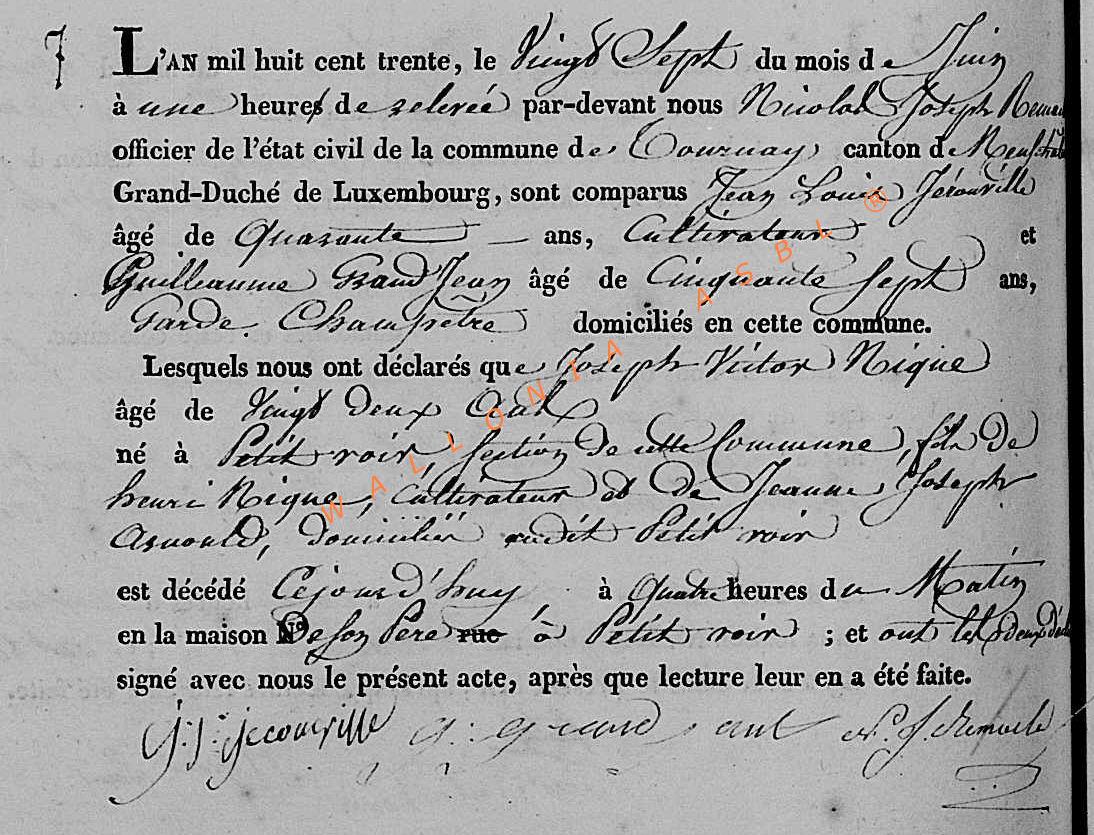 7 L'AN mil huit cent trente, le Vingt Sept du mois de Juin
à une heure de relevée par-devant nous Nicolas Joseph
officier de l'état civil de la commune de Tournay, canton de
Grand-Duché de Luxembourg, sont comparus Jean Louis Jérouville
âgé de Quarante ans, Cultivateur et
Guilleaume Grand Jean âgé de Cinquante Sept ans,
Garde Champêtre domiciliés en cette commune.
Lesquels nous ont déclarés que Joseph Victor Nique
âgé de Vingt deux Ans
né à Petit voir, Section de cette Commune, fils de
henri Nique, Cultivateur et de Jeanne Joseph
Arnould, domiciliés audit Petit voir
est décédé Cejourd'huy à Quatre heures du Matin
en la maison De son Pere rue à Petit voir ; et ont les deux
signé avec nous le présent acte, après que lecture leur en a été faite.
WALLONIA ASBL ®